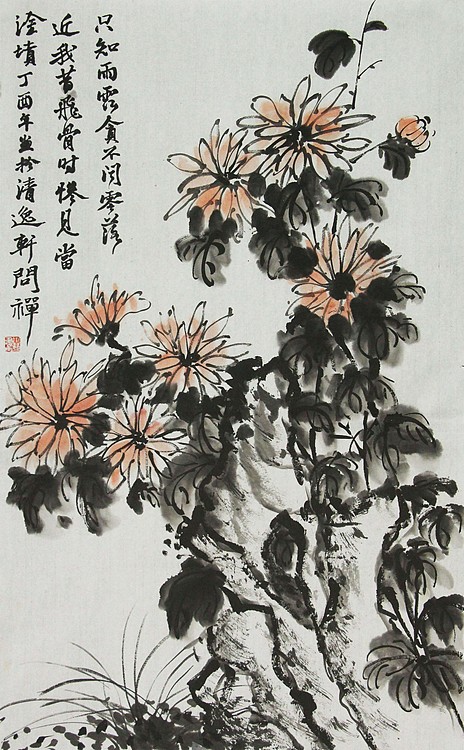 只知雨露貪不闻零落
近我昔飛骨时慘見當
塗墳丁酉年於清逸軒問禪